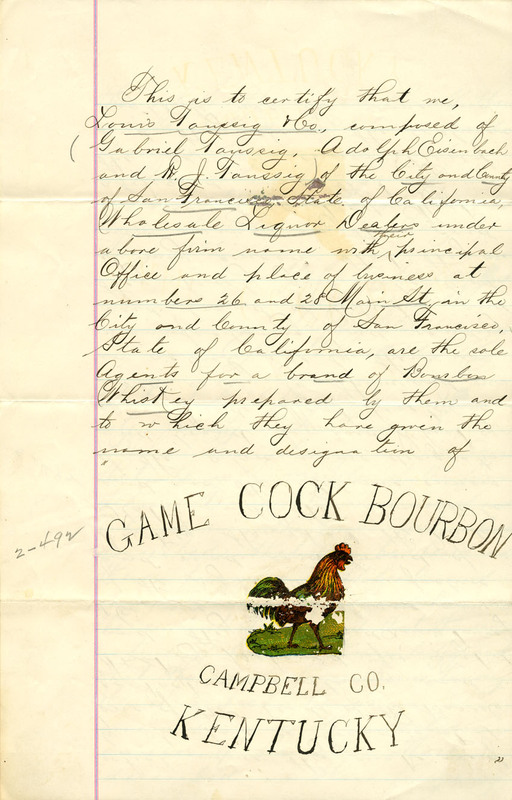 This is to certify that we,
Louis Taussig & Co., composed of
(Gabriel Taussig, Adolph Eisenbach
and R. J. Taussig) of the City and County
of San Francisco State of California,
Wholesale Liquor Dealers under
above firm name with their principal
Office and place of business at
numbers 26 and 28 Main St, in the
City and County of San Francisco,
State of California, are the sole
Agents for a brand of Bourbon
Whiskey prepared by them and
to which they have given the
name and designation of
"
GAME COCK BOURBON
2-492
CAMPBELL CO.
KENTUCKY
"